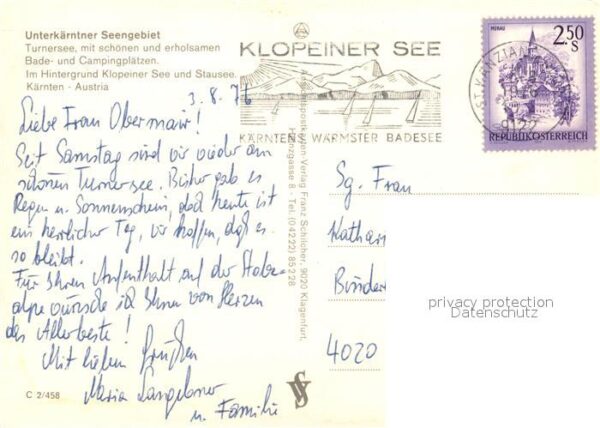 Unterkärntner Seengebiet
Turnersee, mit schönen und erholsamen
Bade- und Campingplätzen.
Im Hintergrund Klopeiner See und Stausee.
Kärnten - Austria
3.8.76
Liebe Frau Obermayr!
Seit Samstag sind wir wieder am
schönen Turnersee. Bisher gab es
Regen u. Sonnenschein, doch heute ist
ein herrlicher Tag, wir hoffen, daß es
so bleibt.
Für Ihren Aufenthalt auf der Stoder
alpe wünsche ich Ihnen von Herzen
das Allerbeste!
Mit lieben Grüßen
Maria
u. Familie
C 2/458
KLOPEINER SEE
KÄRNTENS WÄRMSTER BADESEE
Alpenlandpostkarten-Verlag Franz Schilcher, 9020 Klagenfurt,
8 - Tel. (04222) 85228
MURAU
2.50
S
REPUBLIK ÖSTERREICH
ST. KANZIAN
9122
Sg. Frau
Kathar
Binder
4020
privacy protection
Datenschutz